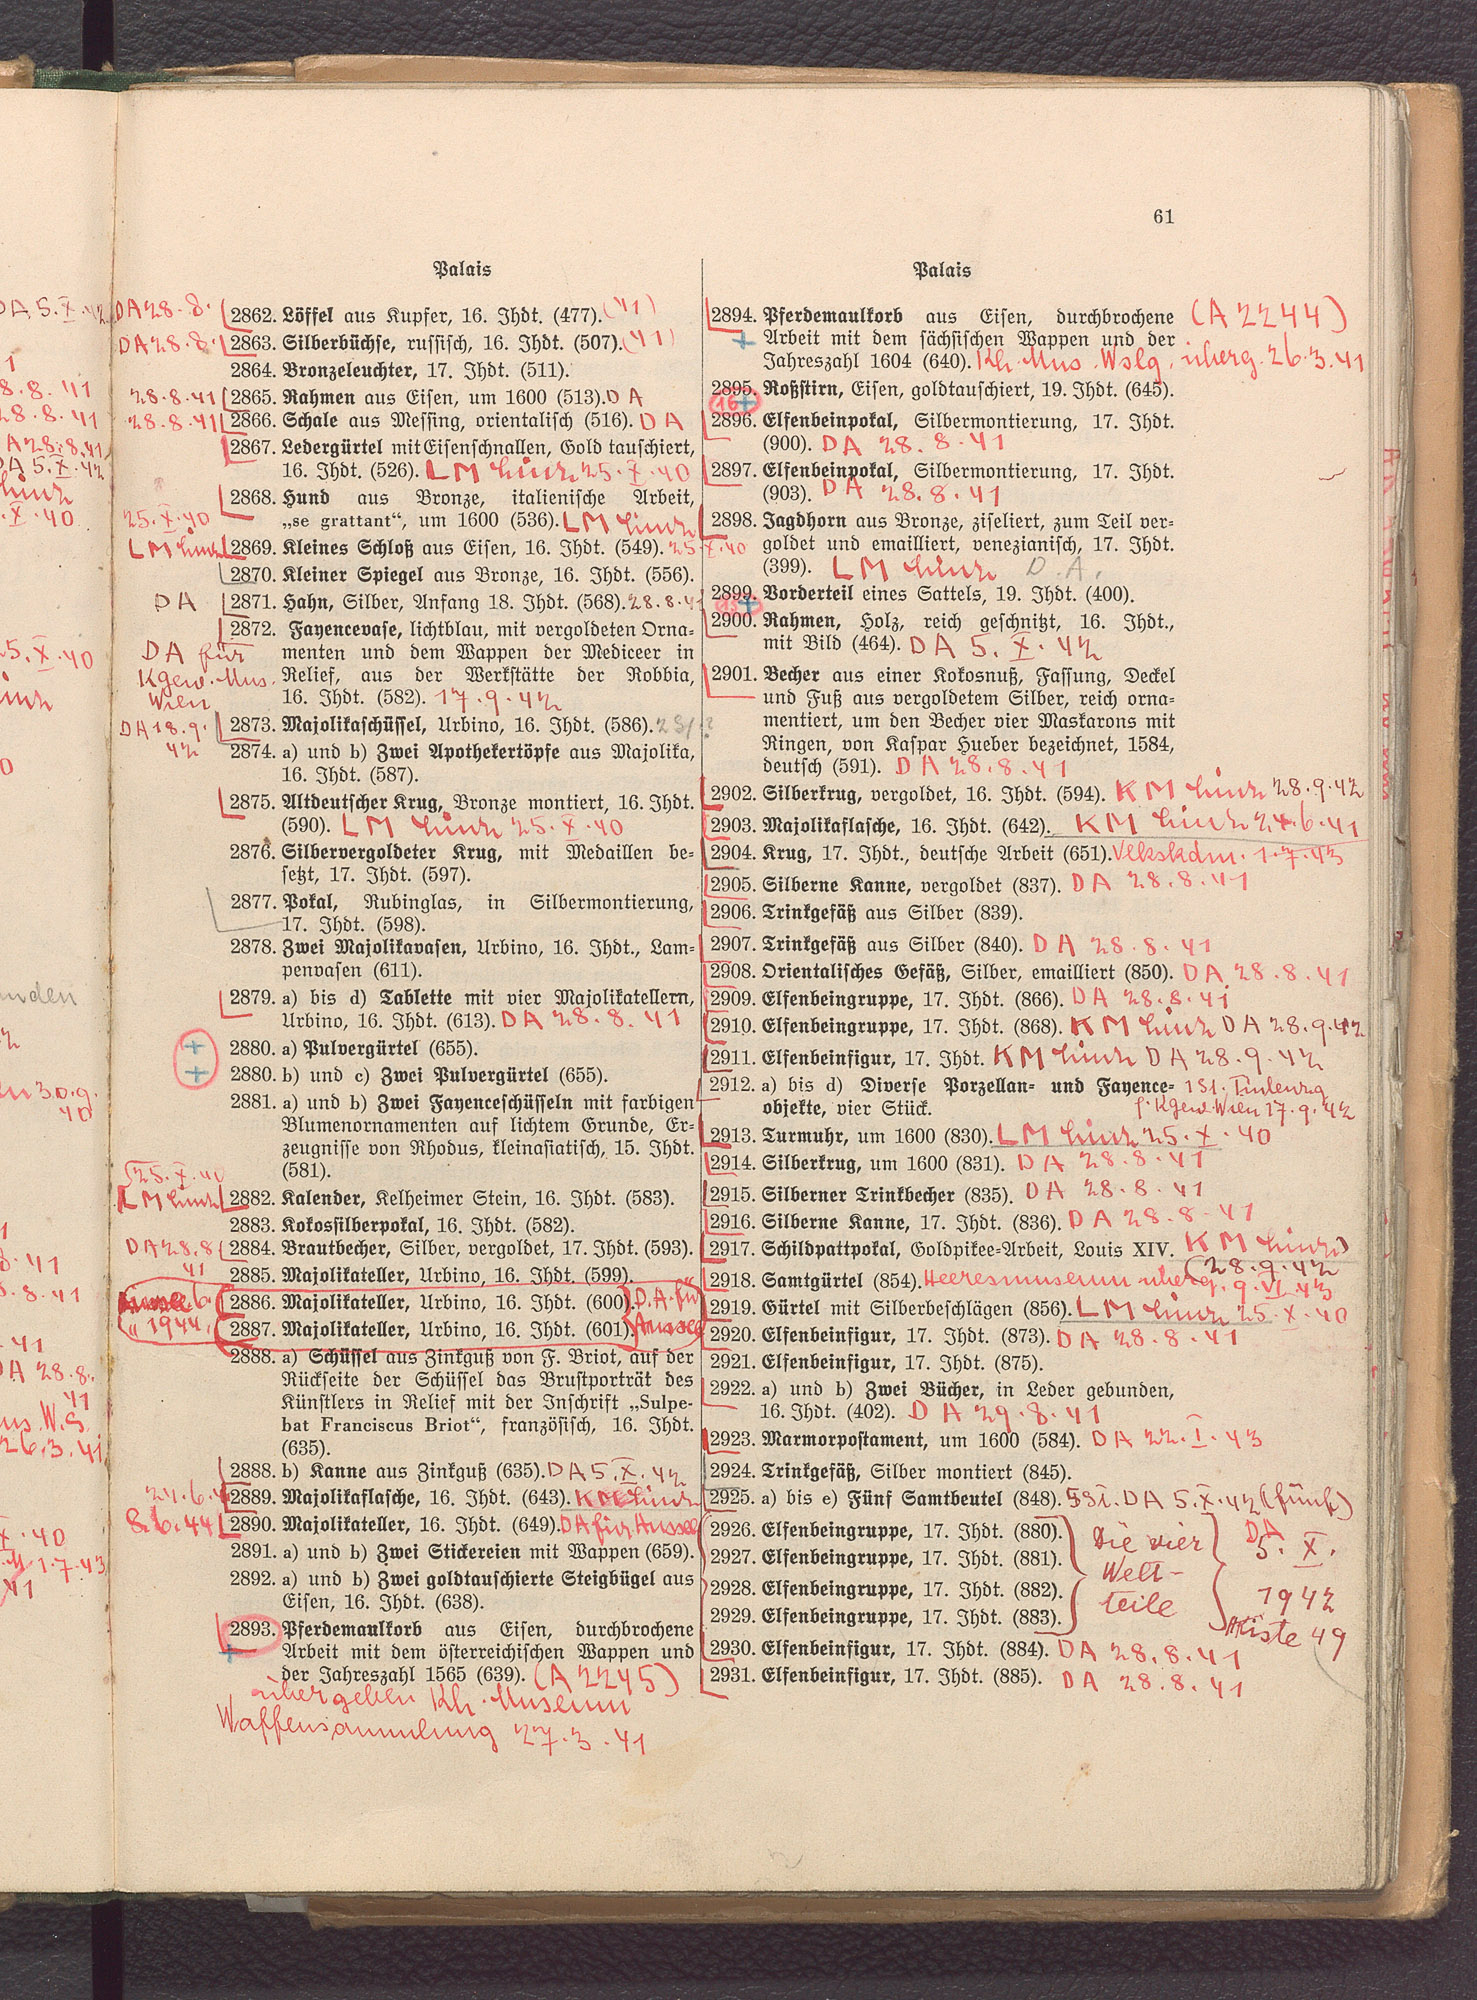 61
Palais
DA 28.8. 2862. Löffel aus Kupfer, 16. Jhdt. (477). (41)
DA 28.8. 2863. Silberbüchse, russisch, 16. Jhdt. (507). (41)
2864. Bronzeleuchter, 17. Jhdt. (511).
28.8.41 2865. Rahmen aus Eisen, um 1600 (513). DA
28.8.41 2866. Schale aus Messing, orientalisch (516). DA
2867. Ledergürtel mit Eisenschnallen, Gold tauschiert,
16. Jhdt. (526). LM Linz 25.X.40
2868. Hund aus Bronze, italienische Arbeit,
25.X.40 „se grattant“, um 1600 (536). LM Linz
LM Linz 2869. Kleines Schloß aus Eisen, 16. Jhdt. (549). 25.X.40
2870. Kleiner Spiegel aus Bronze, 16. Jhdt. (556).
DA 2871. Hahn, Silber, Anfang 18. Jhdt. (568). 28.8.41
2872. Fayencevase, lichtblau, mit vergoldeten Orna-
DA für menten und dem Wappen der Mediceer in
Kgew. Mus. Relief, aus der Werkstätte der Robbia,
Wien 16. Jhdt. (582). 17.9.42
DA 18.9. 2873. Majolikaschüssel, Urbino, 16. Jhdt. (586).
42 2874. a) und b) Zwei Apothekertöpfe aus Majolika,
16. Jhdt. (587).
2875. Altdeutscher Krug, Bronze montiert, 16. Jhdt.
(590). LM Linz 25.X.40
2876. Silbervergoldeter Krug, mit Medaillen be-
setzt, 17. Jhdt. (597).
2877. Pokal, Rubinglas, in Silbermontierung,
17. Jhdt. (598).
2878. Zwei Majolikavasen, Urbino, 16. Jhdt., Lam-
penvasen (611).
2879. a) bis d) Tablette mit vier Majolikatellern,
Urbino, 16. Jhdt. (613). DA 28.8.41
+ 2880. a) Pulvergürtel (655).
+ 2880. b) und c) Zwei Pulvergürtel (655).
2881. a) und b) Zwei Fayenceschüsseln mit farbigen
Blumenornamenten auf lichtem Grunde, Er-
zeugnisse von Rhodus, kleinasiatisch, 15. Jhdt.
(581).
25.X.40
LM Linz 2882. Kalender, Kelheimer Stein, 16. Jhdt. (583).
2883. Kokossilberpokal, 16. Jhdt. (582).
DA 28.8 2884. Brautbecher, Silber, vergoldet, 17. Jhdt. (593).
41 2885. Majolikateller, Urbino, 16. Jhdt. (599).
2886. Majolikateller, Urbino, 16. Jhdt. (600). D.A. für
1944 2887. Majolikateller, Urbino, 16. Jhdt. (601). Aussee
2888. a) Schüssel aus Zinkguß von F. Briot, auf der
Rückseite der Schüssel das Brustporträt des
Künstlers in Relief mit der Inschrift „Sulpe-
bat Franciscus Briot“, französisch, 16. Jhdt.
(635).
2888. b) Kanne aus Zinkguß (635). DA 5.X.42
24.6.4 2889. Majolikaflasche, 16. Jhdt. (643). KM Linz
8.6.44 2890. Majolikateller, 16. Jhdt. (649). DA für Aussee
2891. a) und b) Zwei Stickereien mit Wappen (659).
2892. a) und b) Zwei goldtauschierte Steigbügel aus
Eisen, 16. Jhdt. (638).
2893. Pferdemaulkorb aus Eisen, durchbrochene
+ Arbeit mit dem österreichischen Wappen und
der Jahreszahl 1565 (639). (A 2245)
übergeben Kh. Museum
Waffensammlung 27.3.41
Palais
2894. Pferdemaulkorb aus Eisen, durchbrochene (A 2244)
+ Arbeit mit dem sächsischen Wappen und der
Jahreszahl 1604 (640). Kh. Mus. Wslg. überg. 26.3.41
2895. Roßstirn, Eisen, goldtauschiert, 19. Jhdt. (645).
16+
2896. Elfenbeinpokal, Silbermontierung, 17. Jhdt.
(900). DA 28.8.41
2897. Elfenbeinpokal, Silbermontierung, 17. Jhdt.
(903). DA 28.8.41
2898. Jagdhorn aus Bronze, ziseliert, zum Teil ver-
goldet und emailliert, venezianisch, 17. Jhdt.
(399). LM Linz D.A.
2899. Vorderteil eines Sattels, 19. Jhdt. (400).
15+
2900. Rahmen, Holz, reich geschnitzt, 16. Jhdt.,
mit Bild (464). DA 5.X.42
2901. Becher aus einer Kokosnuß, Fassung, Deckel
und Fuß aus vergoldetem Silber, reich orna-
mentiert, um den Becher vier Maskarons mit
Ringen, von Kaspar Hueber bezeichnet, 1584,
deutsch (591). DA 28.8.41
2902. Silberkrug, vergoldet, 16. Jhdt. (594). KM Linz 28.9.42
2903. Majolikaflasche, 16. Jhdt. (642). KM Linz 24.6.41
2904. Krug, 17. Jhdt., deutsche Arbeit (651). Vlkskdm. 1.7.43
2905. Silberne Kanne, vergoldet (837). DA 28.8.41
2906. Trinkgefäß aus Silber (839).
2907. Trinkgefäß aus Silber (840). DA 28.8.41
2908. Orientalisches Gefäß, Silber, emailliert (850). DA 28.8.41
2909. Elfenbeingruppe, 17. Jhdt. (866). DA 28.8.41
2910. Elfenbeingruppe, 17. Jhdt. (868). KM Linz DA 28.9.42
2911. Elfenbeinfigur, 17. Jhdt. KM Linz DA 28.9.42
2912. a) bis d) Diverse Porzellan- und Fayence-
objekte, vier Stück. f. Kgew. Wien 17.9.42
2913. Turmuhr, um 1600 (830). LM Linz 25.X.40
2914. Silberkrug, um 1600 (831). DA 28.8.41
2915. Silberner Trinkbecher (835). DA 28.8.41
2916. Silberne Kanne, 17. Jhdt. (836). DA 28.8.41
2917. Schildpattpokal, Goldpikee-Arbeit, Louis XIV. KM Linz
(28.9.42
2918. Samtgürtel (854). Heeresmuseum überg. 9.VI.43
2919. Gürtel mit Silberbeschlägen (856). LM Linz 25.X.40
2920. Elfenbeinfigur, 17. Jhdt. (873). DA 28.8.41
2921. Elfenbeinfigur, 17. Jhdt. (875).
2922. a) und b) Zwei Bücher, in Leder gebunden,
16. Jhdt. (402). DA 29.8.41
2923. Marmorpostament, um 1600 (584). DA 22.I.43
2924. Trinkgefäß, Silber montiert (845).
2925. a) bis e) Fünf Samtbeutel (848). 5St. DA 5.X.42 (fünf)
2926. Elfenbeingruppe, 17. Jhdt. (880). Die vier DA
2927. Elfenbeingruppe, 17. Jhdt. (881). Welt- 5.X.
2928. Elfenbeingruppe, 17. Jhdt. (882). teile 1942
2929. Elfenbeingruppe, 17. Jhdt. (883). Kiste 49
2930. Elfenbeinfigur, 17. Jhdt. (884). DA 28.8.41
2931. Elfenbeinfigur, 17. Jhdt. (885). DA 28.8.41